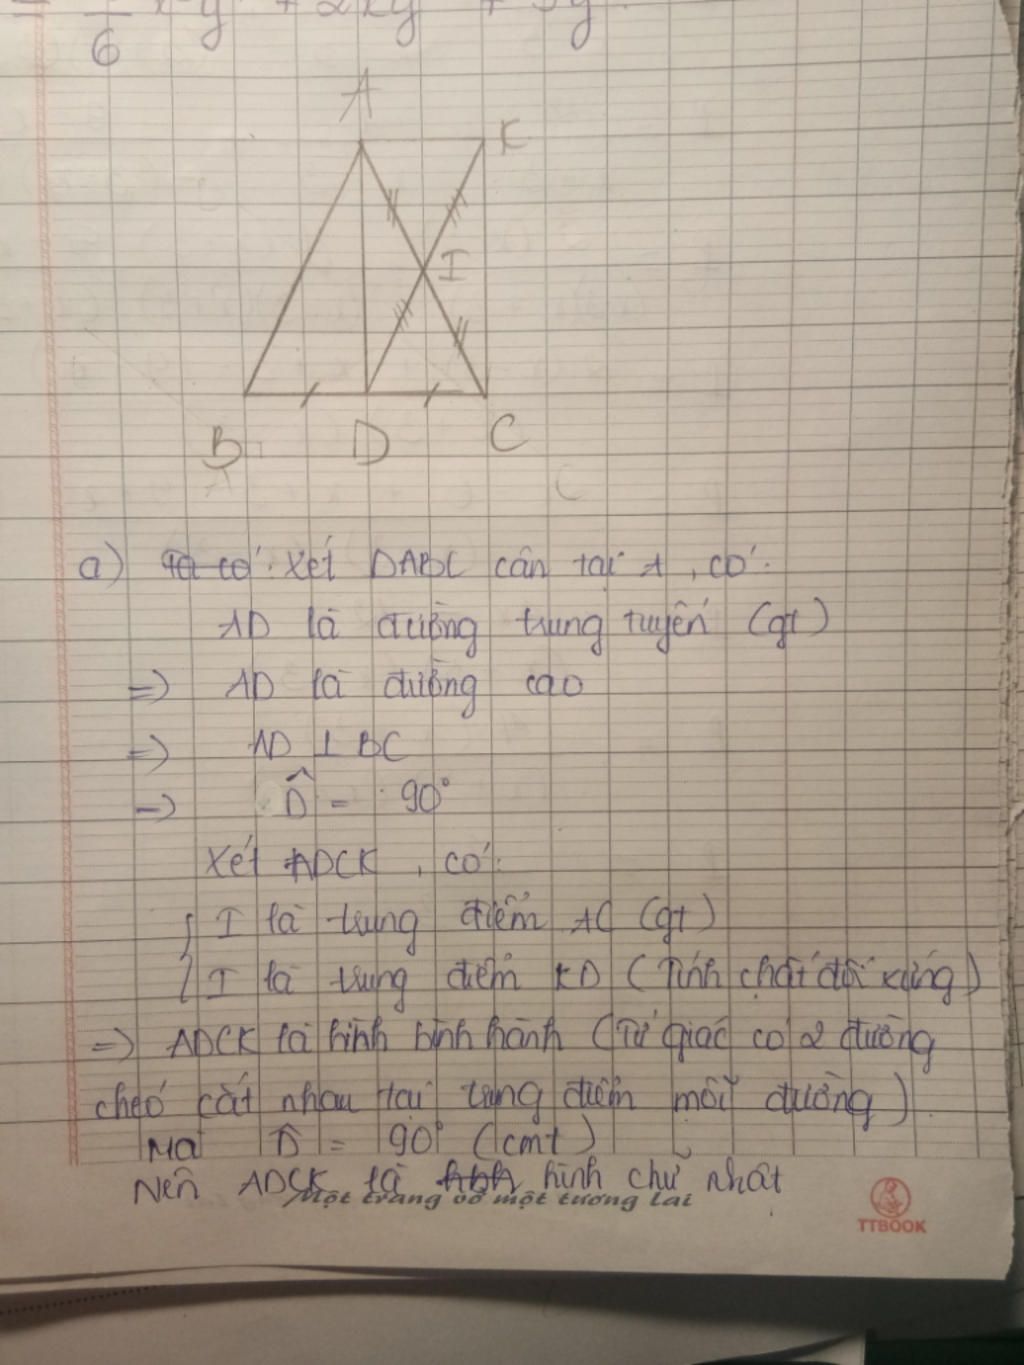 6
A
K
I
B
D
C
C
a) Ta có: Xét DABC cân tại A, có:
AD là đường trung tuyến (gt)
=> AD là đường cao
=> AD ⊥ BC
=> D̂ = 90°
Xét ADCK, có:
{ I là trung điểm AC (gt)
I là trung điểm KD (Tính chất đối xứng)
=> ADCK là hình bình hành (Tứ giác có 2 đường
chéo cắt nhau tại trung điểm mỗi đường)
Mà D̂ = 90° (cmt)
Nên ADCK là hình chữ nhật
Một trang vở một tương lai
TTBOOK